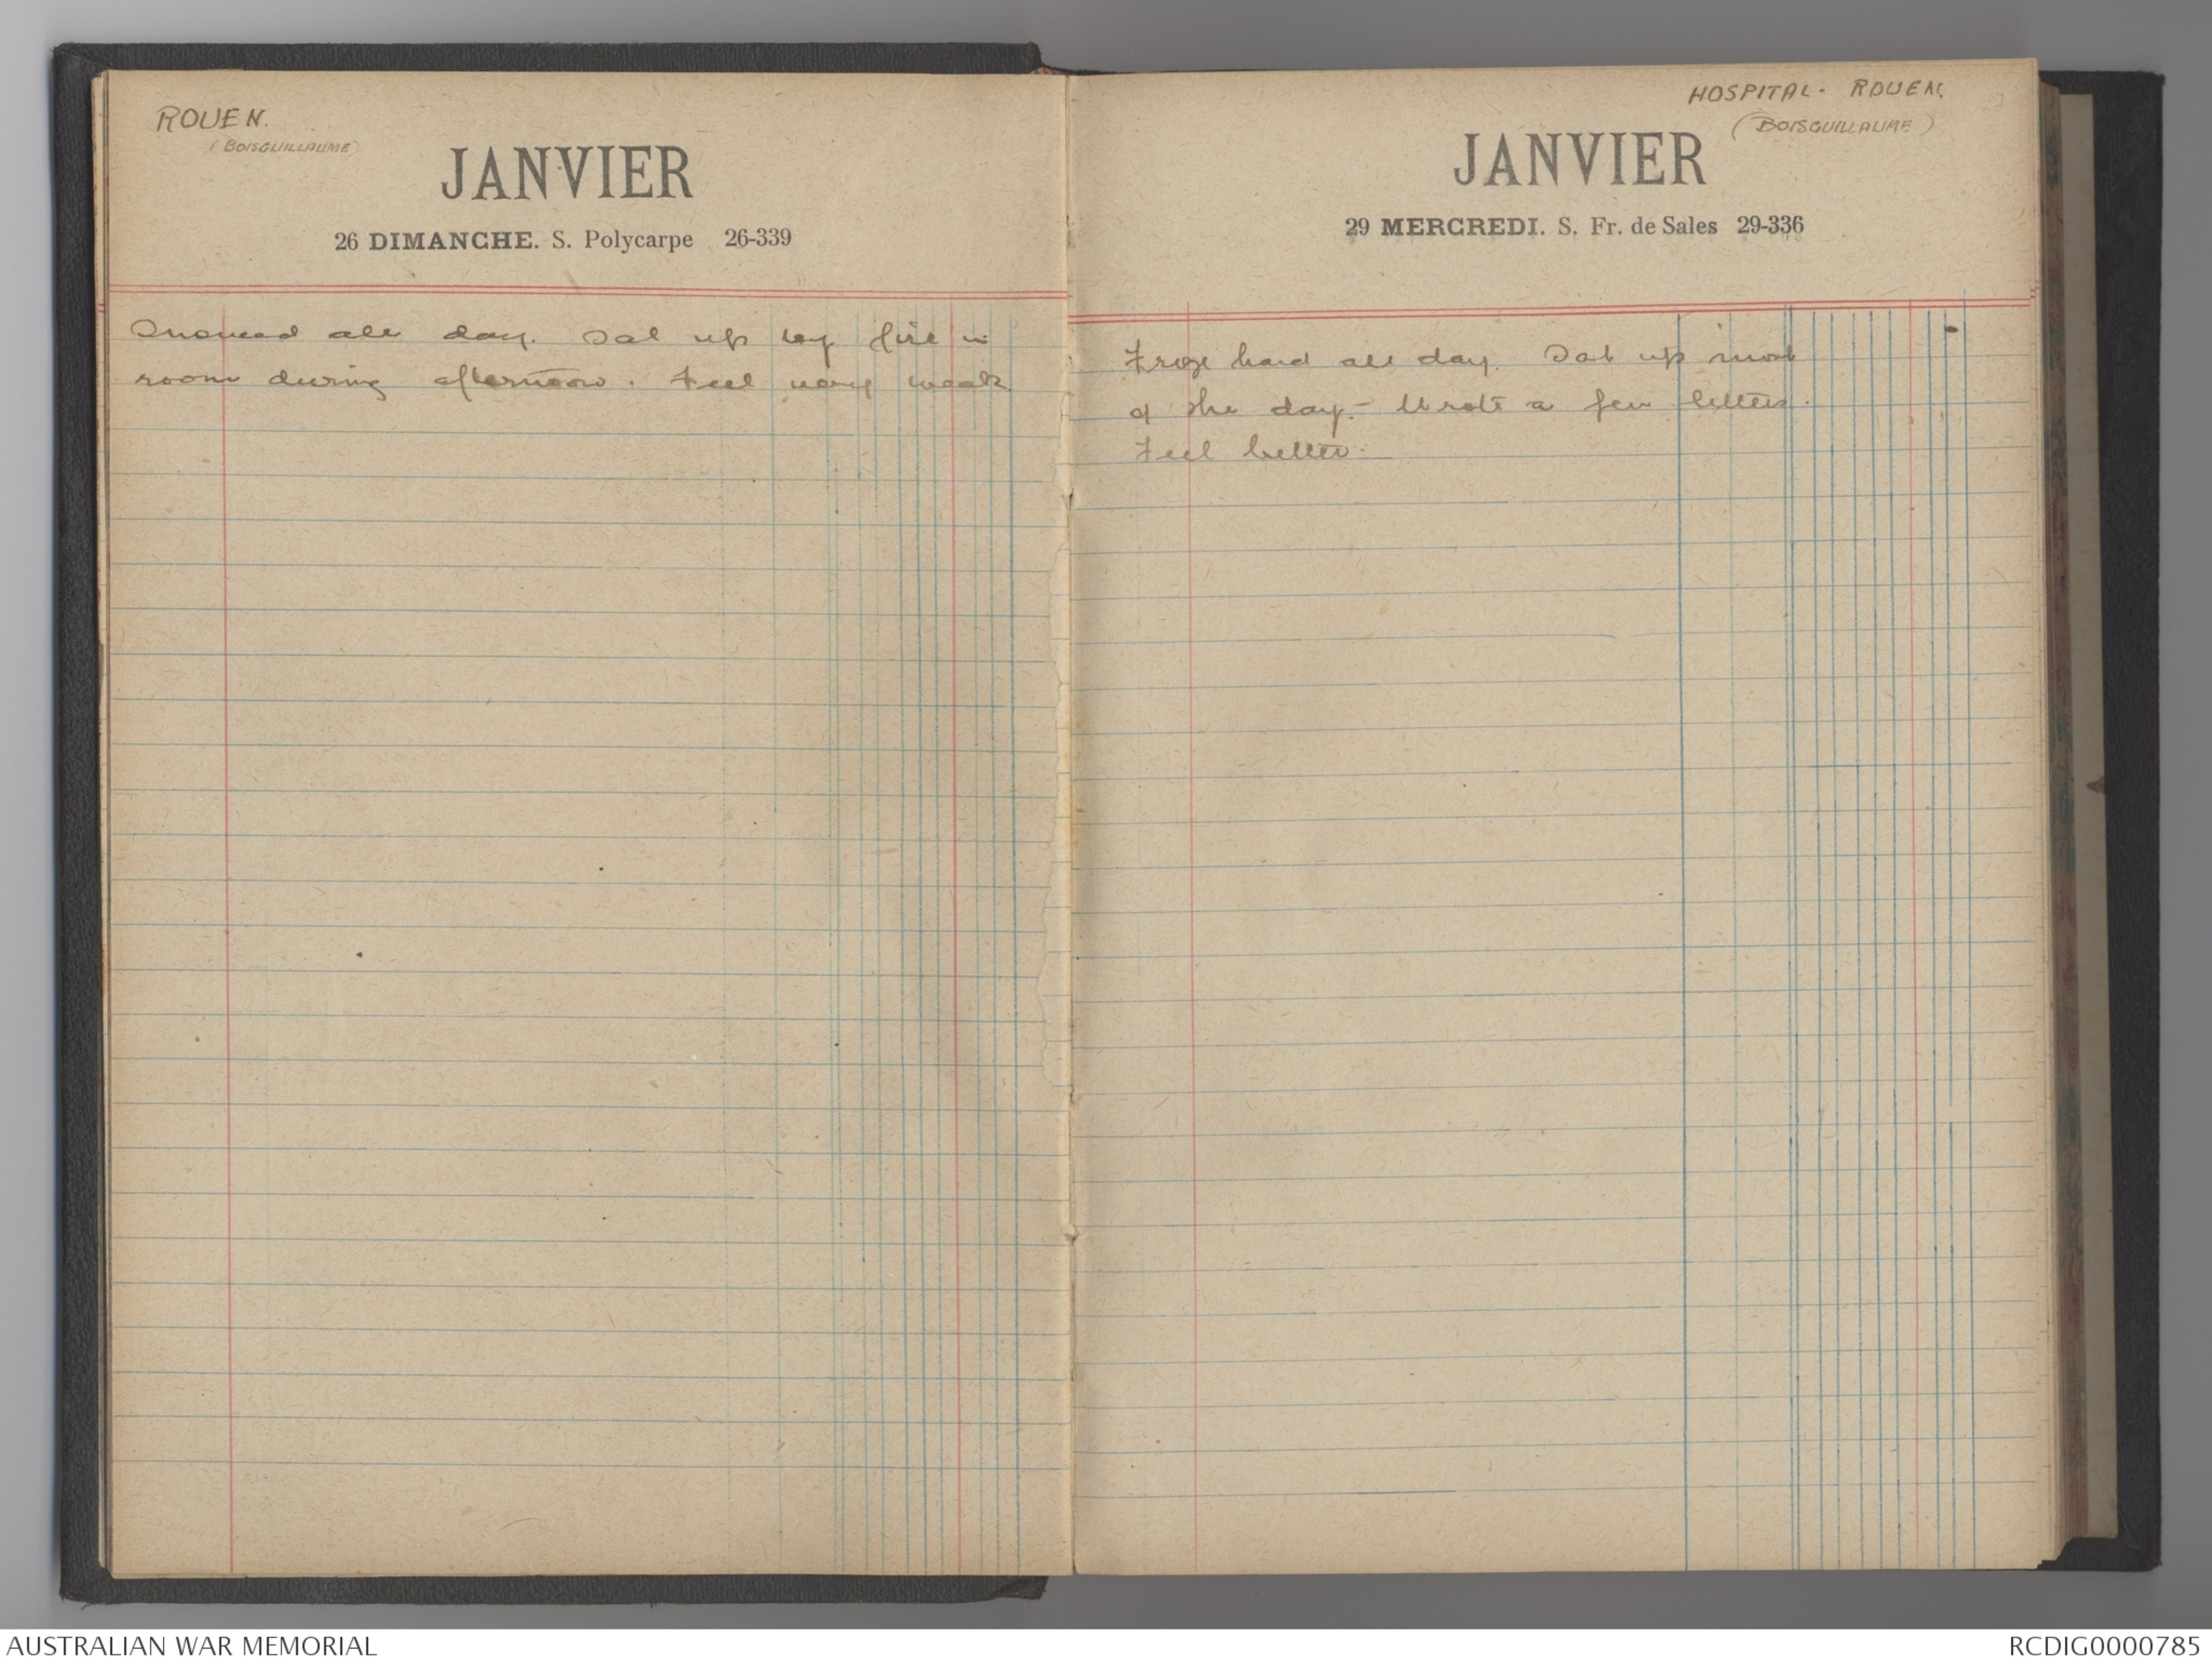 ROUEN.
(BOISGUILLAUME)
JANVIER
26 DIMANCHE. S. Polycarpe 26-339
Snowed all day. Sat up by fire in
room during afternoon. Feel very weak
HOSPITAL - ROUEN.
(BOISGUILLAUME)
JANVIER
29 MERCREDI. S. Fr. de Sales 29-336
Froze hard all day. Sat up most
of the day. - Wrote a few letters.
Feel better.
AUSTRALIAN WAR MEMORIAL
RCDIG0000785